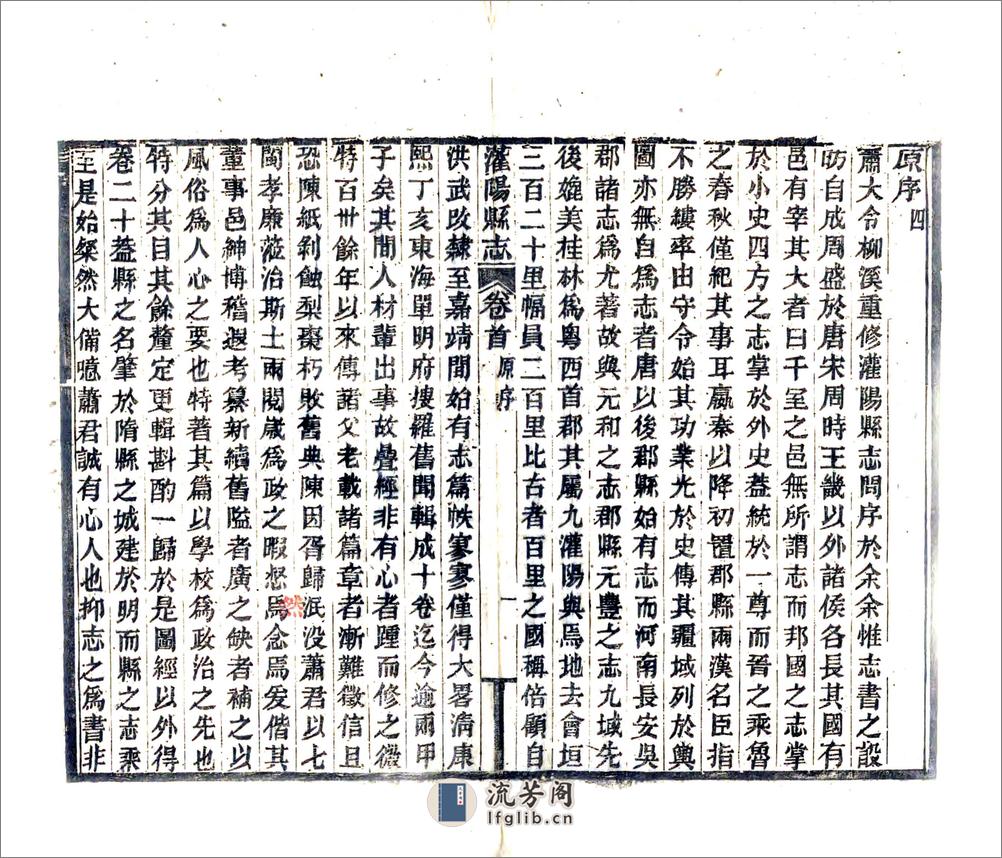 原序四
蕭大令柳溪重修灌陽縣志問序於余余惟志書之設
昉自成周盛於唐宋周時王畿以外諸侯各長其國有
邑有宰其大者曰千室之邑無所謂志而邦國之志掌
於小史四方之志掌於外史葢統於一尊而晉之乘魯
之春秋僅紀其事耳嬴秦以降初置郡縣兩漢名臣指
不勝縷率由守令始其功業光於史傳其疆域列於輿
圖亦無自為志者唐以後郡縣始有志而河南長安吳
郡諸志為尤著故與元和之志郡縣元豐之志九域先
後媲美桂林為粵西首郡其屬九灌陽與焉地去會垣
三百二十里幅員二百里比古者百里之國稱倍顧自
灌陽縣志 卷首 原序 一
洪武改隸至嘉靖間始有志篇帙寥寥僅得大畧淸康
熙丁亥東海單明府搜羅舊聞輯成十卷迄今逾兩甲
子矣其間人材輩出事故疊經非有心者踵而修之微
特百卅餘年以來傳諸父老載諸篇章者漸難徵信且
恐陳紙剝蝕梨棗朽敗舊典陳因胥歸泯没蕭君以七
閩孝廉蒞治斯土兩閱歲為政之暇惄焉念焉爰偕其
然
董事邑紳博稽遐考纂新續舊隘者廣之缺者補之以
風俗為人心之要也特著其篇以學校為政治之先也
特分其目其餘釐定更輯斟酌一歸於是圖經以外得
卷二十葢縣之名肇於隋縣之城建於明而縣之志乘
至是始粲然大備噫蕭君誠有心人也抑志之為書非
流芳阁
lfglib.cn